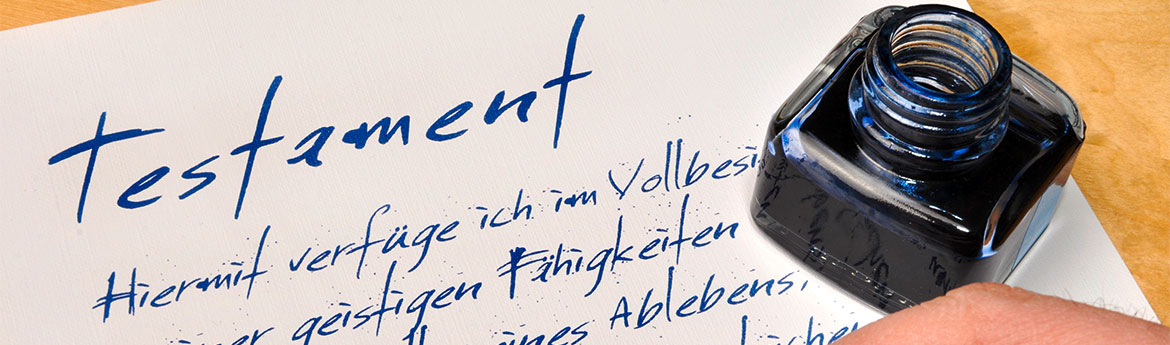 Testament
Hiermit verfüge ich im Vollbesi
geistigen Fähigkeiten
eines Ablebens,